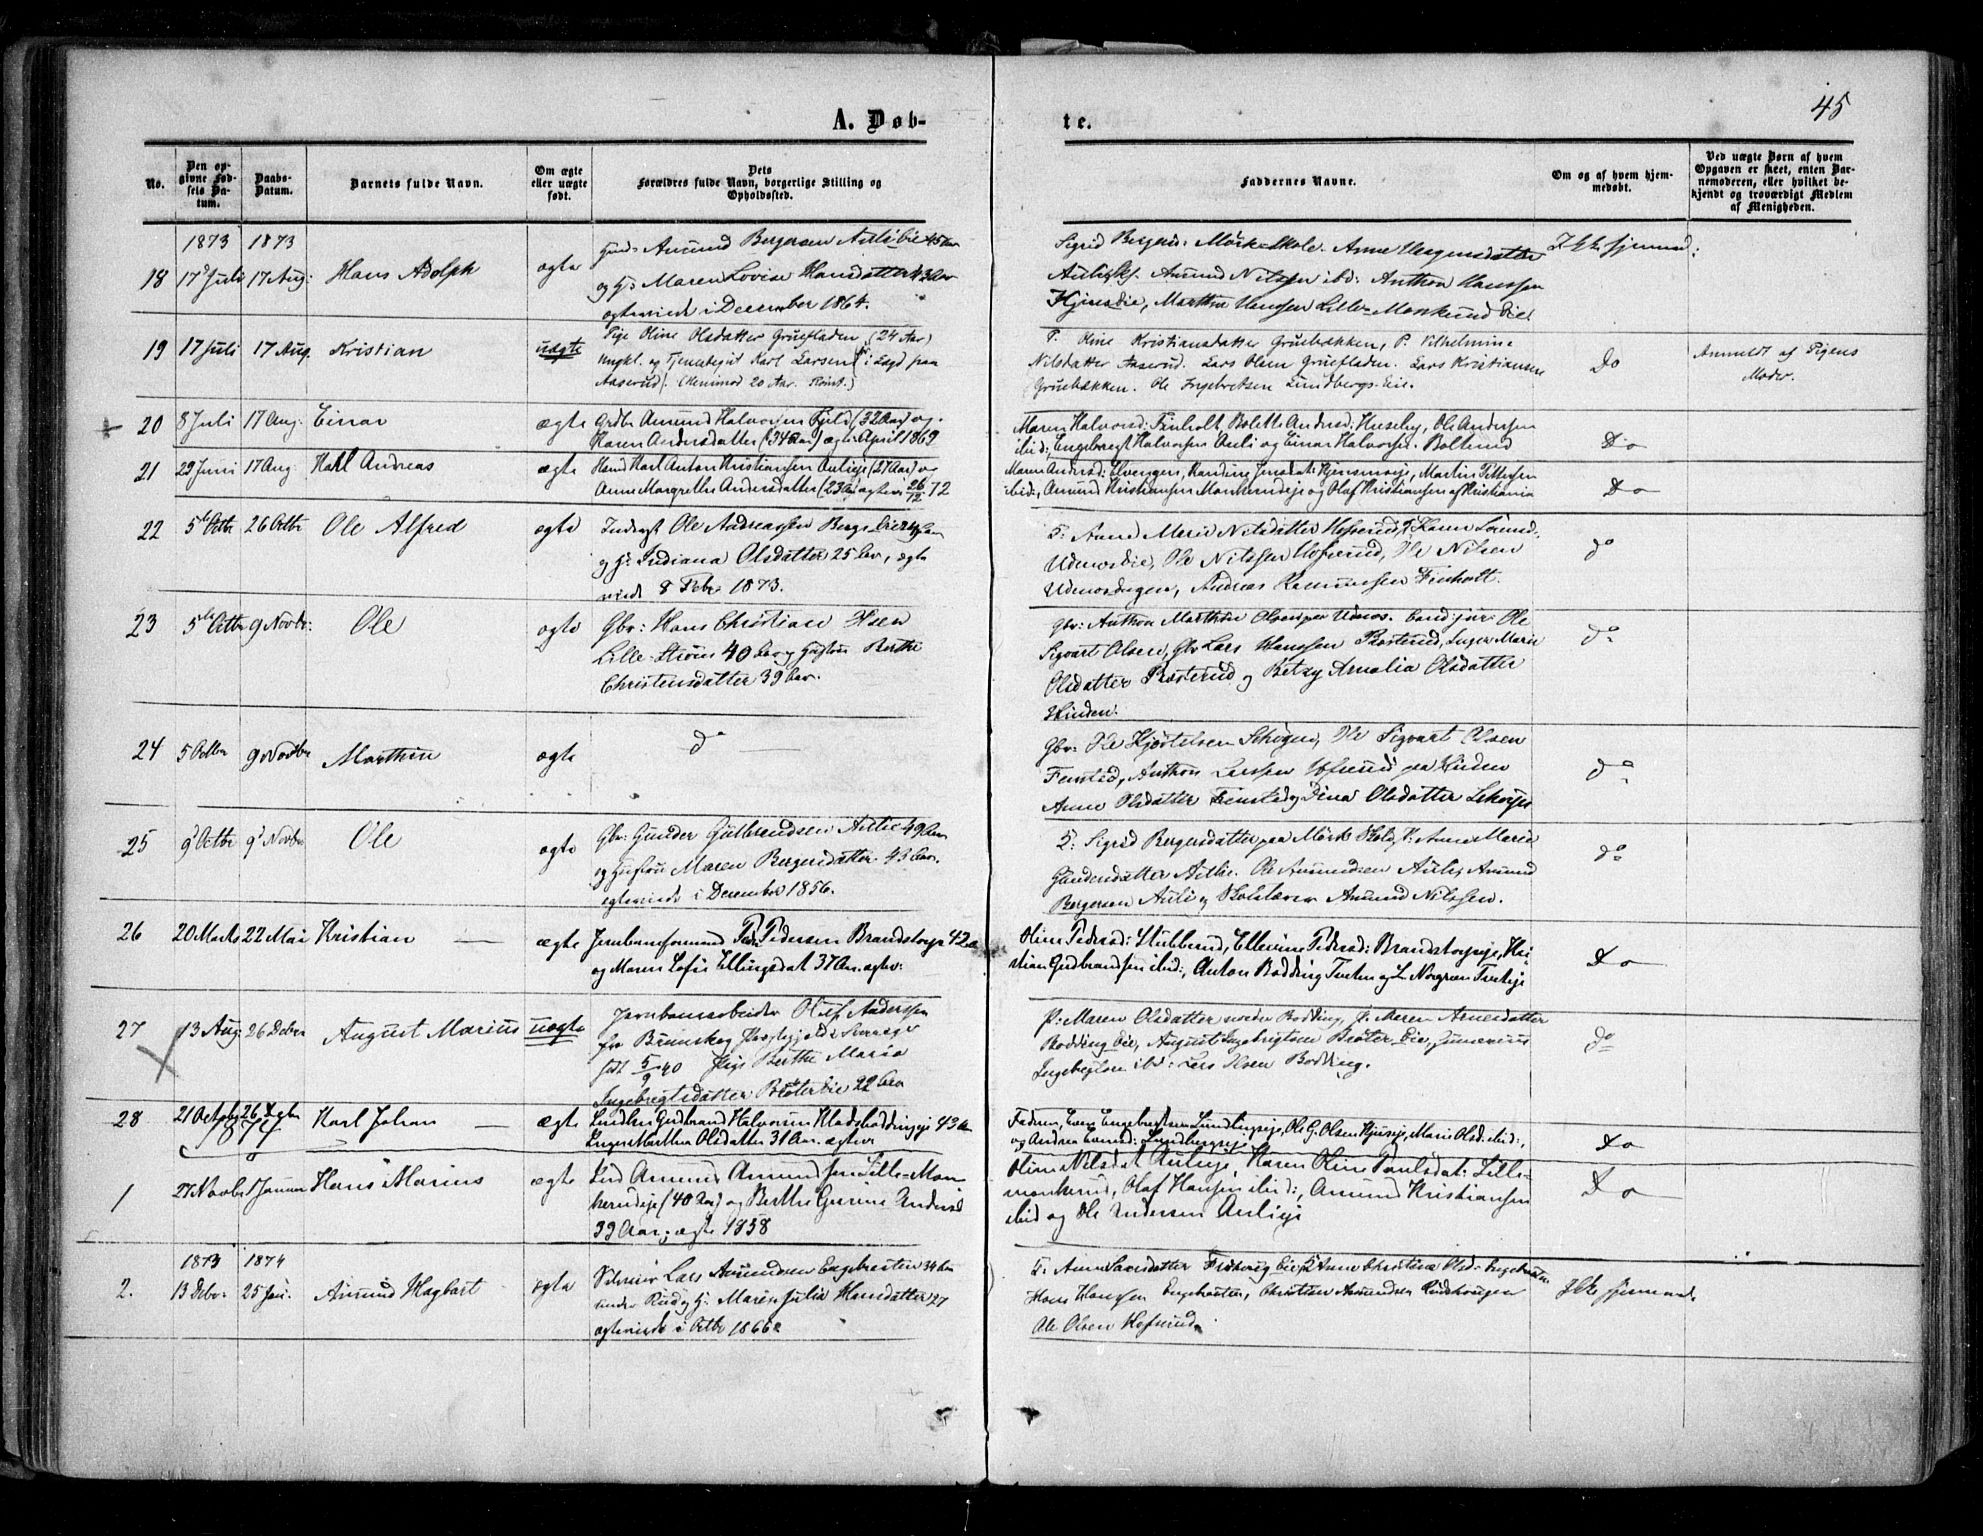 45
A. Døb-
te.
No.
Den op-
givne Fød-
sels Da-
tum.
Daabs-
Datum.
Barnets fulde Navn.
Om ægte
eller uægte
født.
Dets
Forældres fulde Navn, borgerlige Stilling og
Opholdssted.
Faddernes Navne.
Om og af hvem hjem-
medøbt.
Ved uægte Børn af hvem
Opgaven er skeet, enten Bar-
nemoderen, eller hvilket be-
kjendt og troværdigt Medlem
af Menigheden.
1873 1873
18 17 Juli 17 Aug: Hans Adolph ægte
Amund Bergersen Aulieie 45 Aar
og Maren Lovise Hansdatter 43 Aar
ægteviede i December 1864.
Sigrid Bergersd: Mörk-Skole.
Aulie Amund Nilssen ibd: Anthon Hanssen
Marthin Hanssen Lille-Monkerud Eie.
Ikke hjemmed:
19 17 Juli 17 Aug. Kristian uægte
Pige Oline Olsdatter Gruefladen (24 Aar)
Ungkl. og Tjenestegut Karl Larsen (i Lægd paa
Aaserud 20 Aar.
P. Oline Kristiansdatter Gruebækken, P. Vilhelmine
Nilsdatter Aaserud. Lars Olsen Gruefladen. Lars Kristiansen
Gruebækken. Ole Ingebretsen Lundbergs-Eie.
Do
Anmeldt af Pigens
Moder.
20 8 Juli 17 Aug. Einar ægte
Grdbr Amund Halvorsen Fjeld (32 Aar) og
Karen Andersdatter (34 Aar) ægtev: April 1869
Maren Halvorsd: Finholt, Bolette Andersd: Huseby, Ole Andersen
ibid:, Engebregt Halvorsen Auli og Einar Halvorsen
Do
21 29 Juni 17 Aug Karl Andreas ægte
Karl Anton Kristiansen Aulieje (27 Aar) og
Anne Margrethe Andersdatter (23 Aar) ægtev: 26/12 72
Maren Andersd: Elvengen, Martin Pettersen
ibid:, Amund Kristiansen Monkerudeje og Olaf Kristiansen af Kristiania
Do
22 5te Octbr 26 Octbr Ole Alfred ægte
Inderst Ole Andreassen Bergs Eie 24 Aar
og H: Indiana Olsdatter 25 Aar, ægte
viede 8 Febr 1873.
P: Anne Marie Nilsdatter Hofserud,
Udenes Eie, Ole Nilssen Hofserud, Ole Nilsen
Andreas Rasmussen Finholt.
do
23 5te Octbr 9 Novbr: Ole ægte
Gbr: Hans Christian Ihsen
Lille-Ström 40 Aar og Hustru Berthe
Christensdatter 39 Aar.
Gbr: Anthon Marthin Olsen paa Udnes. Cand: jur: Ole
Sigvart Olsen, Gbr Lars Hanssen Rosterud, Inger Marie
Olsdatter Rosterud og Betzy Amalia Olsdatter
Hinden.
do
24 5 Octbr 9 Novbr Marthin ægte
do
Gbr: Ole Hjortelsen Skogen, Ole Sigvart Olsen
Fenstad, Anthon Larssen Hofserud paa Hinden
Anne Olsdatter Fenstad og Dina Olsdatter
do
25 9d Octbr 9d Novbr Ole ægte
Gbr: Gunder Gulbrandsen Aulie 49 Aar
og Hustru Maren Bergersdatter 43 Aar.
ægteviede i December 1856.
P: Sigrid Bergersdatter paa Mörk Skole, P: Anne Marie
Gundersdatter Aulie. Ole Amundsen Auli, Amund
Bergersen Auli og Skolelærer Amund Nilssen.
do
26 20 Marts 22 Mai Kristian — ægte
Jernbaneformand Peder Pedersen Brandstorpeje 42 A
og Maren Sofie Ellingsdat 37 Aar. ægtev:
Oline Pedersd: Stubberud, Ellevine Pedersd: Brandstorpeje, Kri-
stian Gudbrandsen ibid:, Anton Bodding
Do
27 13 Aug. 26 Decbr August Marius uægte
Jernbanearbeider Oluf Anderssen
fra Brunskog Præstegjeld i Sverrig
født 5/9 40 Pige Berthe Maria
Ingebregtsdatter Bröter Eie 22 Aar
P: Maren Olsdatter nedre Bodding, P: Maren Arnesdatter
Bodding Eie, August Ingebrigtsen Bröter Eie, Gunerius
Ingebrigtsen ibd: Lars Olsen Bodding.
do
28 21 Octobr 26 Decbr Karl Johan — ægte
Gudbrand Halvorsen Bodding eje 43 A
Inger Marthea Olsdatter 31 Aar. ægtev
Faderen, Even Engebretsen Lundbergseje, Ole G. Olsen, Marie Olsd: ibid:,
og Andrea Evensd: Lundbergseje
Do
1874
1 27 Novbr 1 Januar Hans Marius ægte
Ind Amund Amundsen Lille-Mon-
kerudeje (40 Aar) og Berthe Gurine Andersd
39 Aar, ægtev 1858
Oline Nilsdat Aulieje, Karen Oline Paulsdat: Lille-
monkerud, Olaf Hansen ibid:, Amund Kristiansen
ibid og Ole Andersen Aulieje
Do
1873 1874
2. 13 Decbr 25 Jan. Amund Hagbart ægte
Selveier Lars Amundsen Engebraaten 34 Aar
under Rud og H: Maren Julia Hansdatter 27
ægteviede i Octbr 1866
Anne Christine Olsd: Engebraaten
Hans Hanssen Engebraaten, Christian Amundsen Rudshaugen
Ole Olsen Hofserud.
Ikke hjemmed: